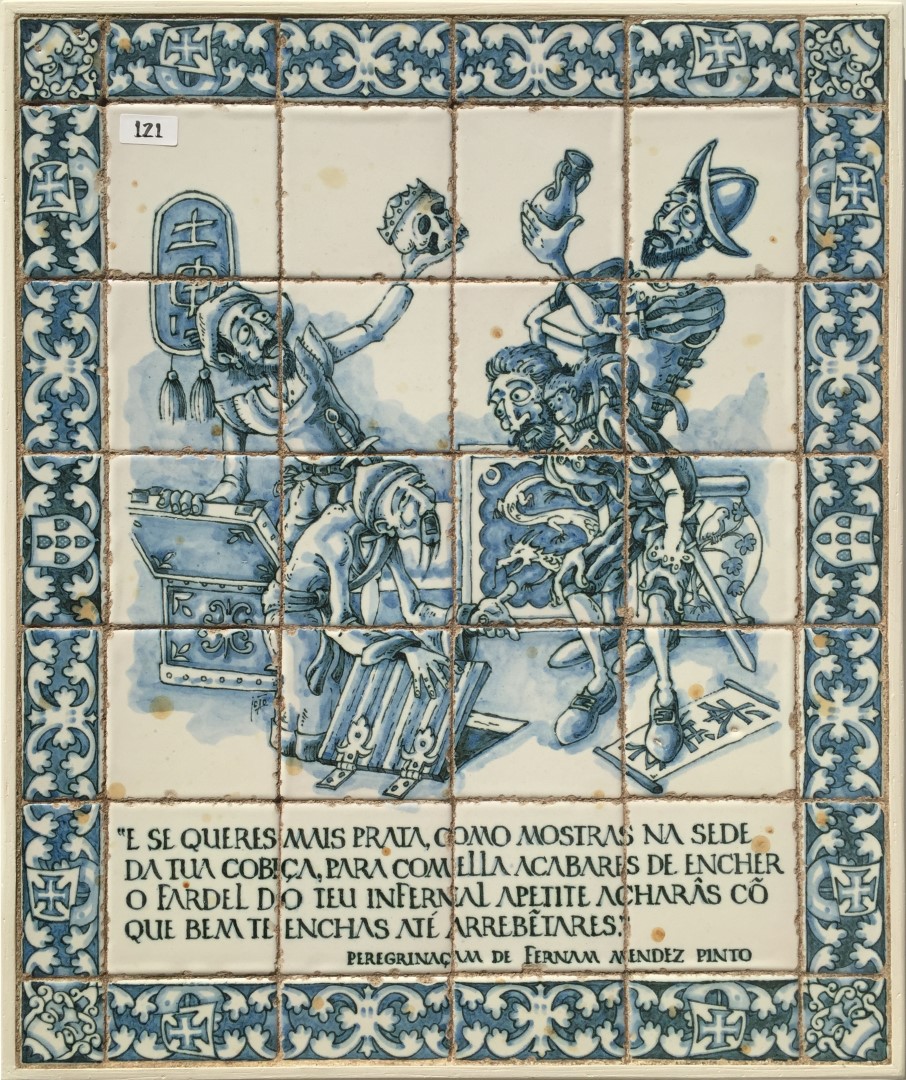 121
士
中
"E SE QUERES MAIS PRATA, COMO MOSTRAS NA SEDE
DA TUA COBIÇA, PARA COM ELLA ACABARES DE ENCHER
O FARDEL DO TEU INFERNAL APETITE ACHARÂS CÕ
QUE BEM TE ENCHAS ATÉ ARREBẼTARES."
PEREGRINAÇAM DE FERNAM MENDEZ PINTO